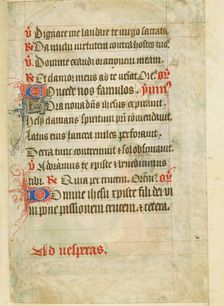 ℣ Dignare me laudare te virgo sacrata
℟ Da michi virtutem contra hostes tuos
℣ Domine exaudi orationem meam
Et clamor meus ad te veniat. Oro
Concede nos famulos
Hora nona dñs ihesus expiravit
clamans spiritum
Latus eius lancea miles perforavit
Terra tunc contremuit et sol obscuravit
℣ Adoramus te xpiste et benedicimus
tibi. ℟ Quia per crucem. Oremus
Domine ihesu xpiste fili dei vi
passionem crucem, et cetera.
Ad vesperas.